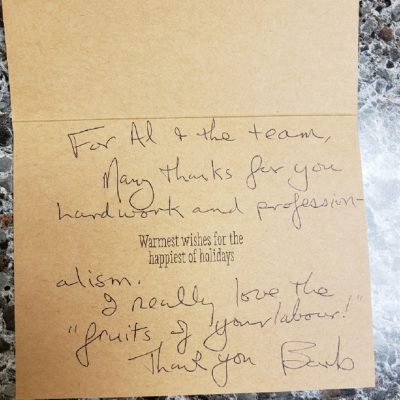 For Al & the team,
Many thanks for you
hardwork and profession-
Warmest wishes for the
happiest of holidays
alism.
I really love the
"fruits of your labour!"
Thank you Barb